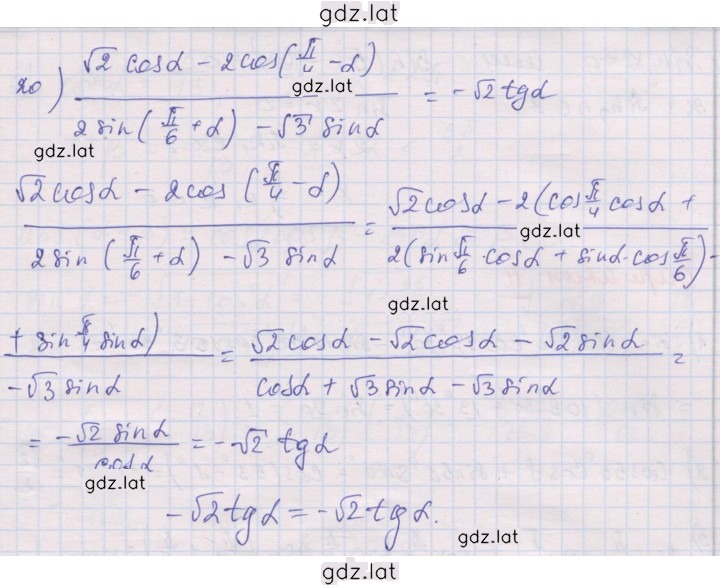 gdz.lat
20) (√2 cosα − 2cos(π/4 − α)) / (2sin(π/6 + α) − √3 sinα) = −√2 tgα
gdz.lat
gdz.lat
(√2cosα − 2cos(π/4 − α)) / (2sin(π/6 + α) − √3 sinα) = (√2cosα − 2(cos π/4 cosα +) / (2(sin π/6 · cosα + sinα · cos π/6) −
gdz.lat
gdz.lat
(+ sin π/4 sinα)) / (−√3 sinα) = (√2cosα − √2cosα − √2sinα) / (cosα + √3sinα − √3sinα) =
= (−√2 sinα) / (cosα) = −√2 tgα
gdz.lat
−√2tgα = −√2tgα.
gdz.lat
gdz.lat